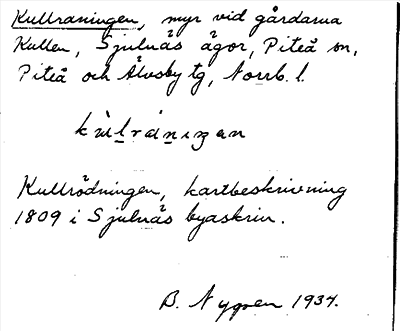 Kullraningen, myr vid gårdarna
Kullen, Sjulnäs ägor, Piteå sn,
Piteå och Älvsby tg, Norrb. l.
Kullrödningen, kartbeskrivning
1809 i Sjulnäs byaskrin.
B. Nygren 1934.